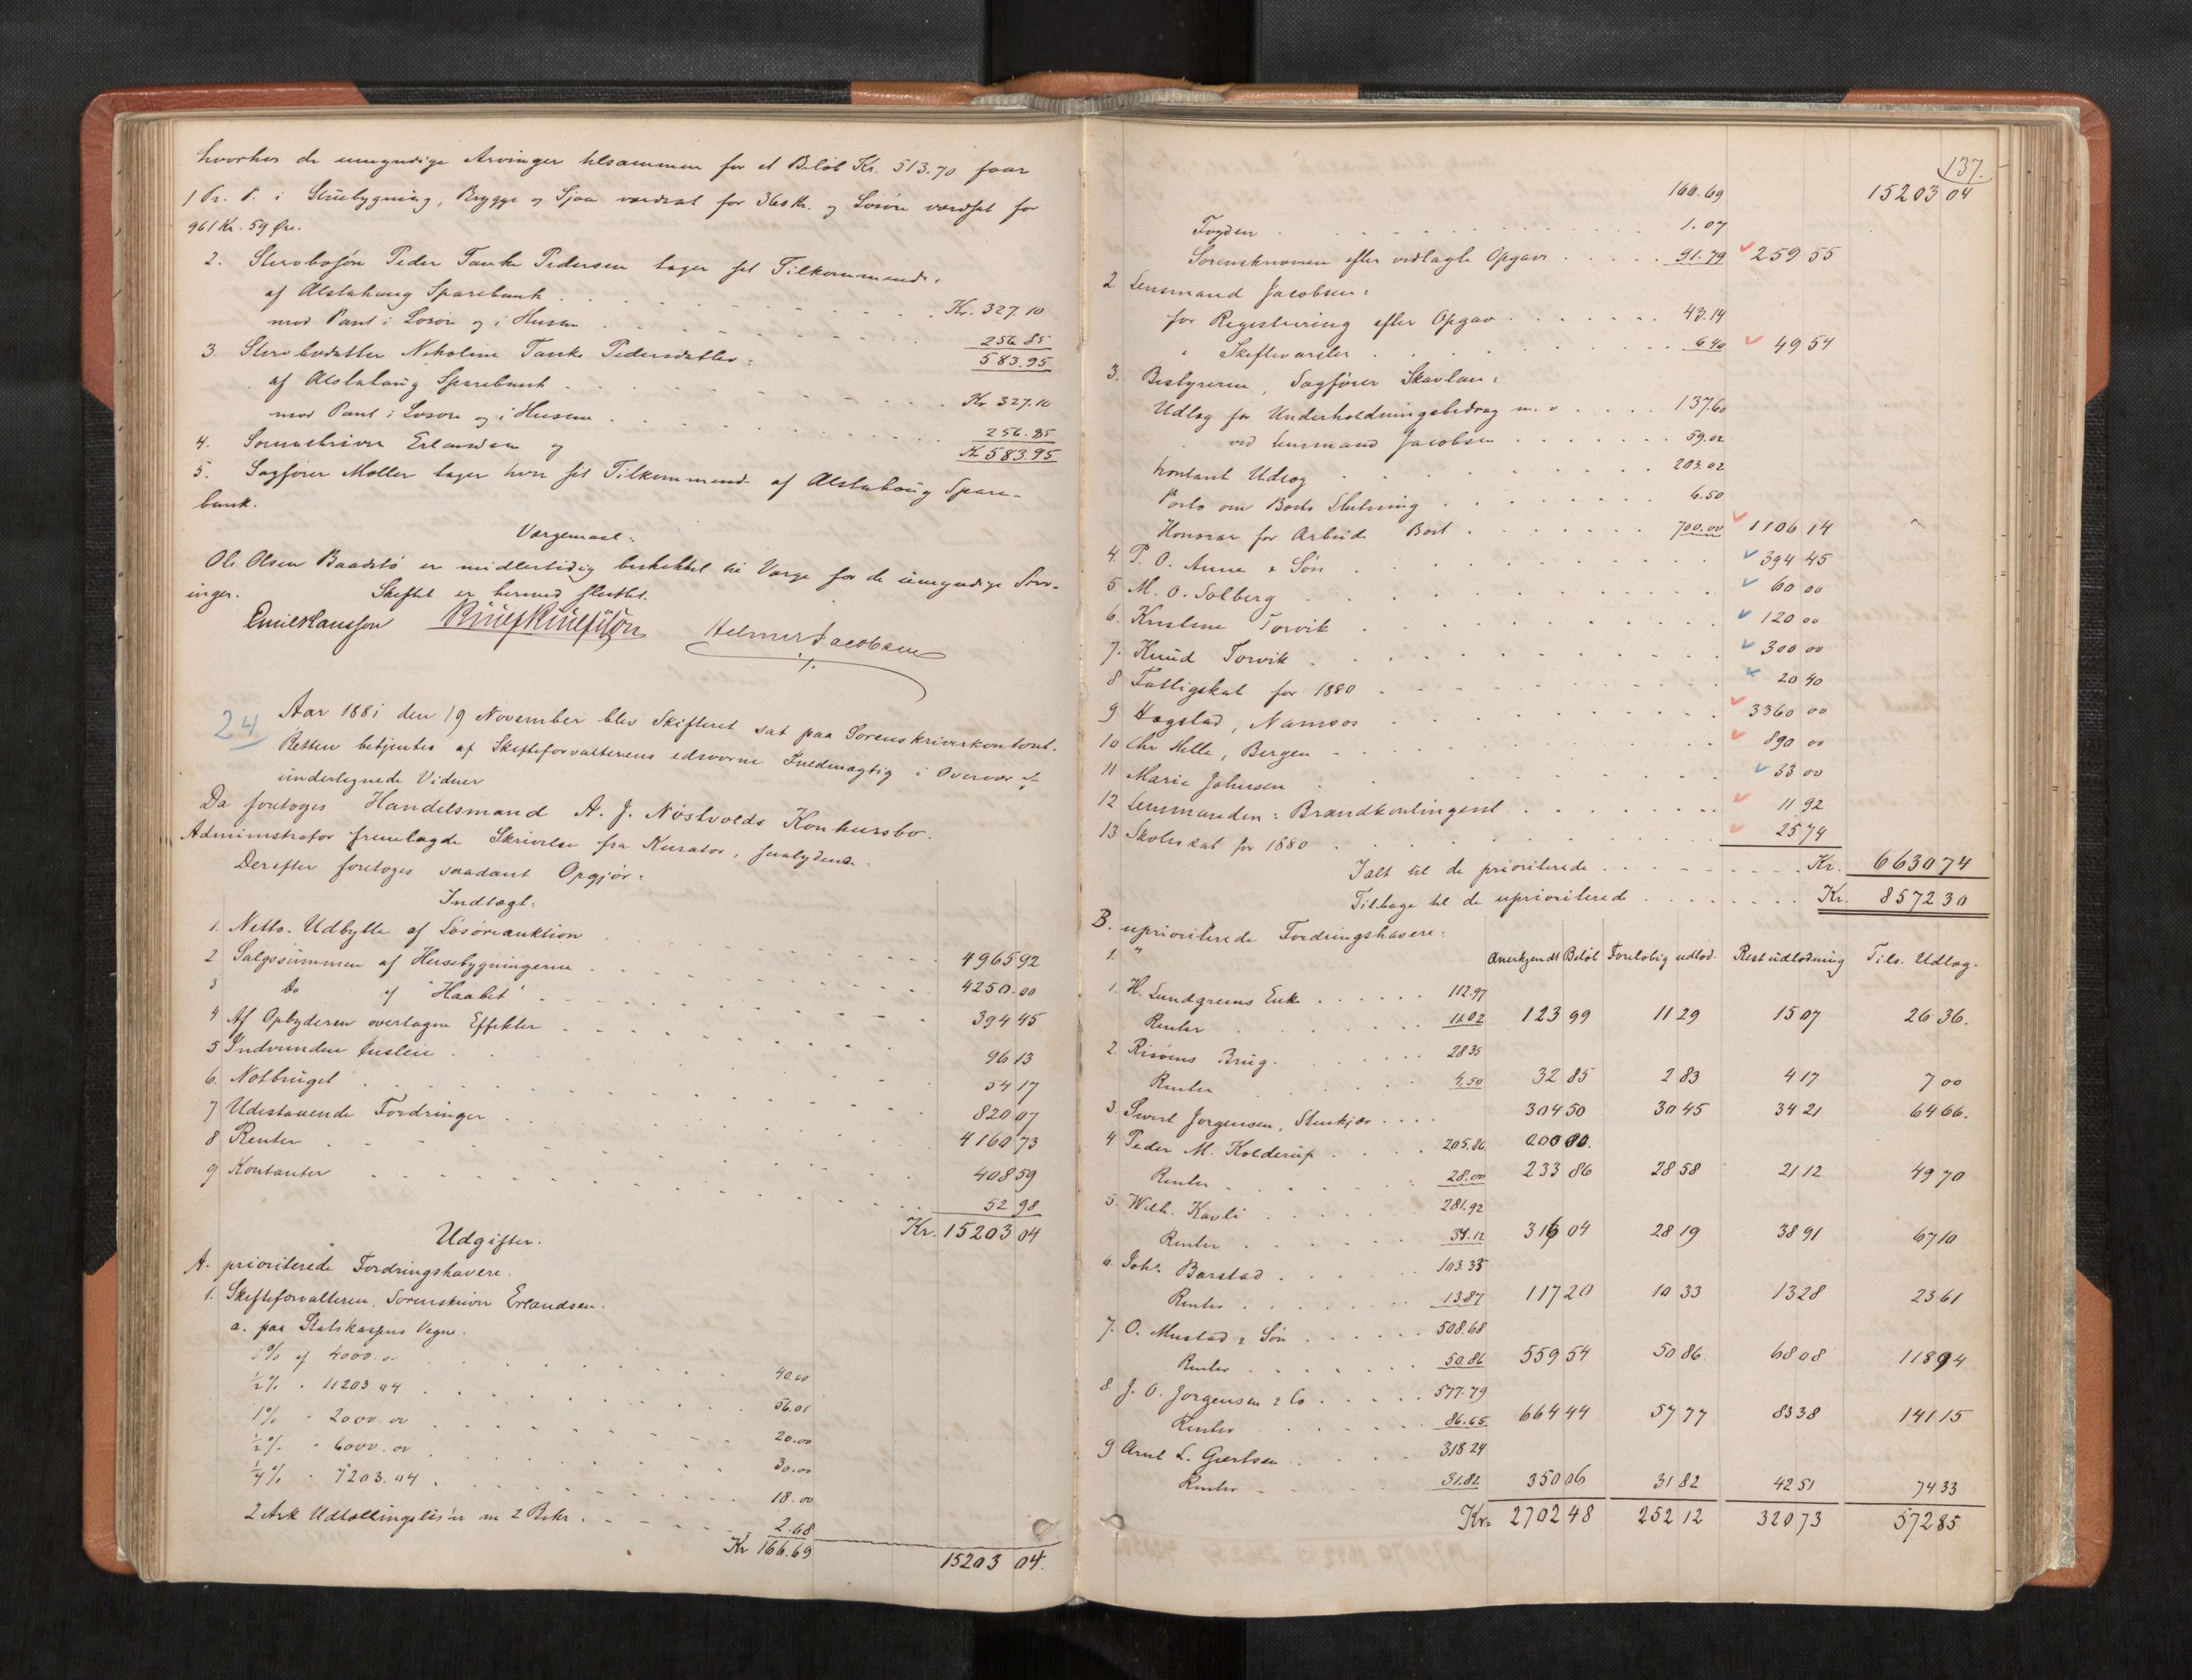 hvorhos de umyndige Arvinger tilsammen for et Beløb Kr. 513.70 faar
1 Pr. P. i Stuebygning, Brygge og Sjaa værdsat for 360 Kr. og Løsøre værdsat for
961 Kr. 59 Øre.
2. Stervbosøn Peder Tanke Pedersen tager sit Tilkommende:
af Alstahaug Sparebank . . . Kr. 327.10
mod Pant i Løsøre og i Husene . . . 256.85
583.95
3. Stervbodatter Nikoline Tanke Pedersdatter:
af Alstahaug Sparebank . . . Kr 327.10
mod Pant i Løsøre og i Husene . . . 256.85
Kr 583.95
4. Sorenskriver Erlandsen og
5. Sagfører Møller tager hver sit Tilkommende af Alstahaug Spare-
bank.
Værgemaal:
Ole Olsen Baadstø er midlertidig beskikket til Værge for de umyndige Arv-
inger. Skiftet er hermed sluttet.
Helmer Jacobsen
24. Aar 1881 den 19 November blev Skifteret sat paa Sorenskriverkontoret.
Retten betjentes af Skifteforvalterens edsvorne Fuldmægtig i Overvær af
undertegnede Vidner
Da foretoges Handelsmand A. J. Nøstvolds Konkursbo.
Administrator fremlagde Skrivelse fra Kurator, saalydende.
Derefter foretoges saadant Opgjør:
Indtægt:
1. Netto-Udbytte af Løsøreauktion . . . 4965 92
2 Salgssummen af Husebygningerne . . . 4250.00
3 Do af "Haabet" . . . 394 45
4 Af Opbyderen overtagne Effekter . . . 96 13
5 Indvunden Husleie . . . 54 17
6. Notbruget . . . 820 07
7 Udestaaende Fordringer . . . 4160 73
8 Renter . . . 408 59
9 Kontanter . . . 52 98
Kr. 15203 04
Udgifter.
A. prioriterede Fordringshavere.
1. Skifteforvalteren, Sorenskriver Erlandsen.
a. paa Statskassens Vegne.
1% af 4000.00 . . . 40.00
½% " 11203 04 . . . 56.01
1% " 2000.00 . . . 20.00
½% " 6000.00 . . . 30.00
¼% " 7203.04 . . . 18.00
2 Ark Udlodningslister m 2 Bekr. . . . 2.68
Kr 166.69 15203 04.
137.
166.69 15203 04
Fogden . . . 1.07
Sorenskriveren efter vedlagte Opgave . . . 91.79 259 55
2 Lensmand Jacobsen:
for Registrering efter Opgave . . . 43.14
" Skiftevarsler . . . 6.40 49 54
3. Bestyreren, Sagfører Skavlan:
Udlæg for Underholdningsbidrag m. v . . . 137.60
ved Lensmand Jacobsen . . . 59.02
kontant Udlæg . . . 203.02
Porto om Boets Slutning . . . 6.50
Honorar for Arbeide i Boet . . . 700.00 1106 14
4. P. O. Aune & Søn . . . 394 45
5 M. O. Solberg . . . 60 00
6. Kristine Torvik . . . 120 00
7. Knud Torvik . . . 300 00
8 Fattigskat for 1880 . . . 20 40
9 Hagstad, Namsos . . . 3360 00
10 Chr Helle, Bergen . . . 890 00
11 Marie Johnsen . . . 33 00
12 Lensmanden: Brandkontingent . . . 11 92
13 Skoleskat for 1880 . . . 25 74
Ialt til de prioriterede . . . Kr. 6630 74
Tilbage til de uprioriterede . . . Kr. 8572 30
B. uprioriterede Fordringshavere:
1. " Anerkjendt Beløb Foreløbig udlod. Restudlodning Tils. Udlæg.
1. H. Lundgreens Enke . . . 112.97
Renter . . . 11.02 123 99 11 29 15 07 26 36.
2. Risøens Brug . . . 28 35
Renter . . . 4.50 32 85 2 83 4 17 7 00
3. Sivert Jørgensen, Stenkjær . . . 304 50 30 45 34 21 64 66.
4 Peder M. Kolderup . . . 205.86.
Renter . . . 28.00 233 86 28 58 21 12 49 70
5. Wilh. Kavli . . . 281.92
Renter . . . 34.12 316 04 28 19 38 91 67 10
6. Johs. Barstad . . . 103.33
Renter . . . 13 87 117 20 10 33 13 28 23 61
7. O. Mustad & Søn . . . 508.68
Renter . . . 50.86 559 54 50 86. 68 08 118 94
8. J. O. Jørgensen & Co . . . 577.79
Renter . . . 86.65. 664 44 57 77 83 38 141 15
9 Arnt L. Giertsen . . . 318 24
Renter . . . 31.82 350 06 31 82 42 51 74 33
Kr. 2702 48 252 12 320 73 572 85